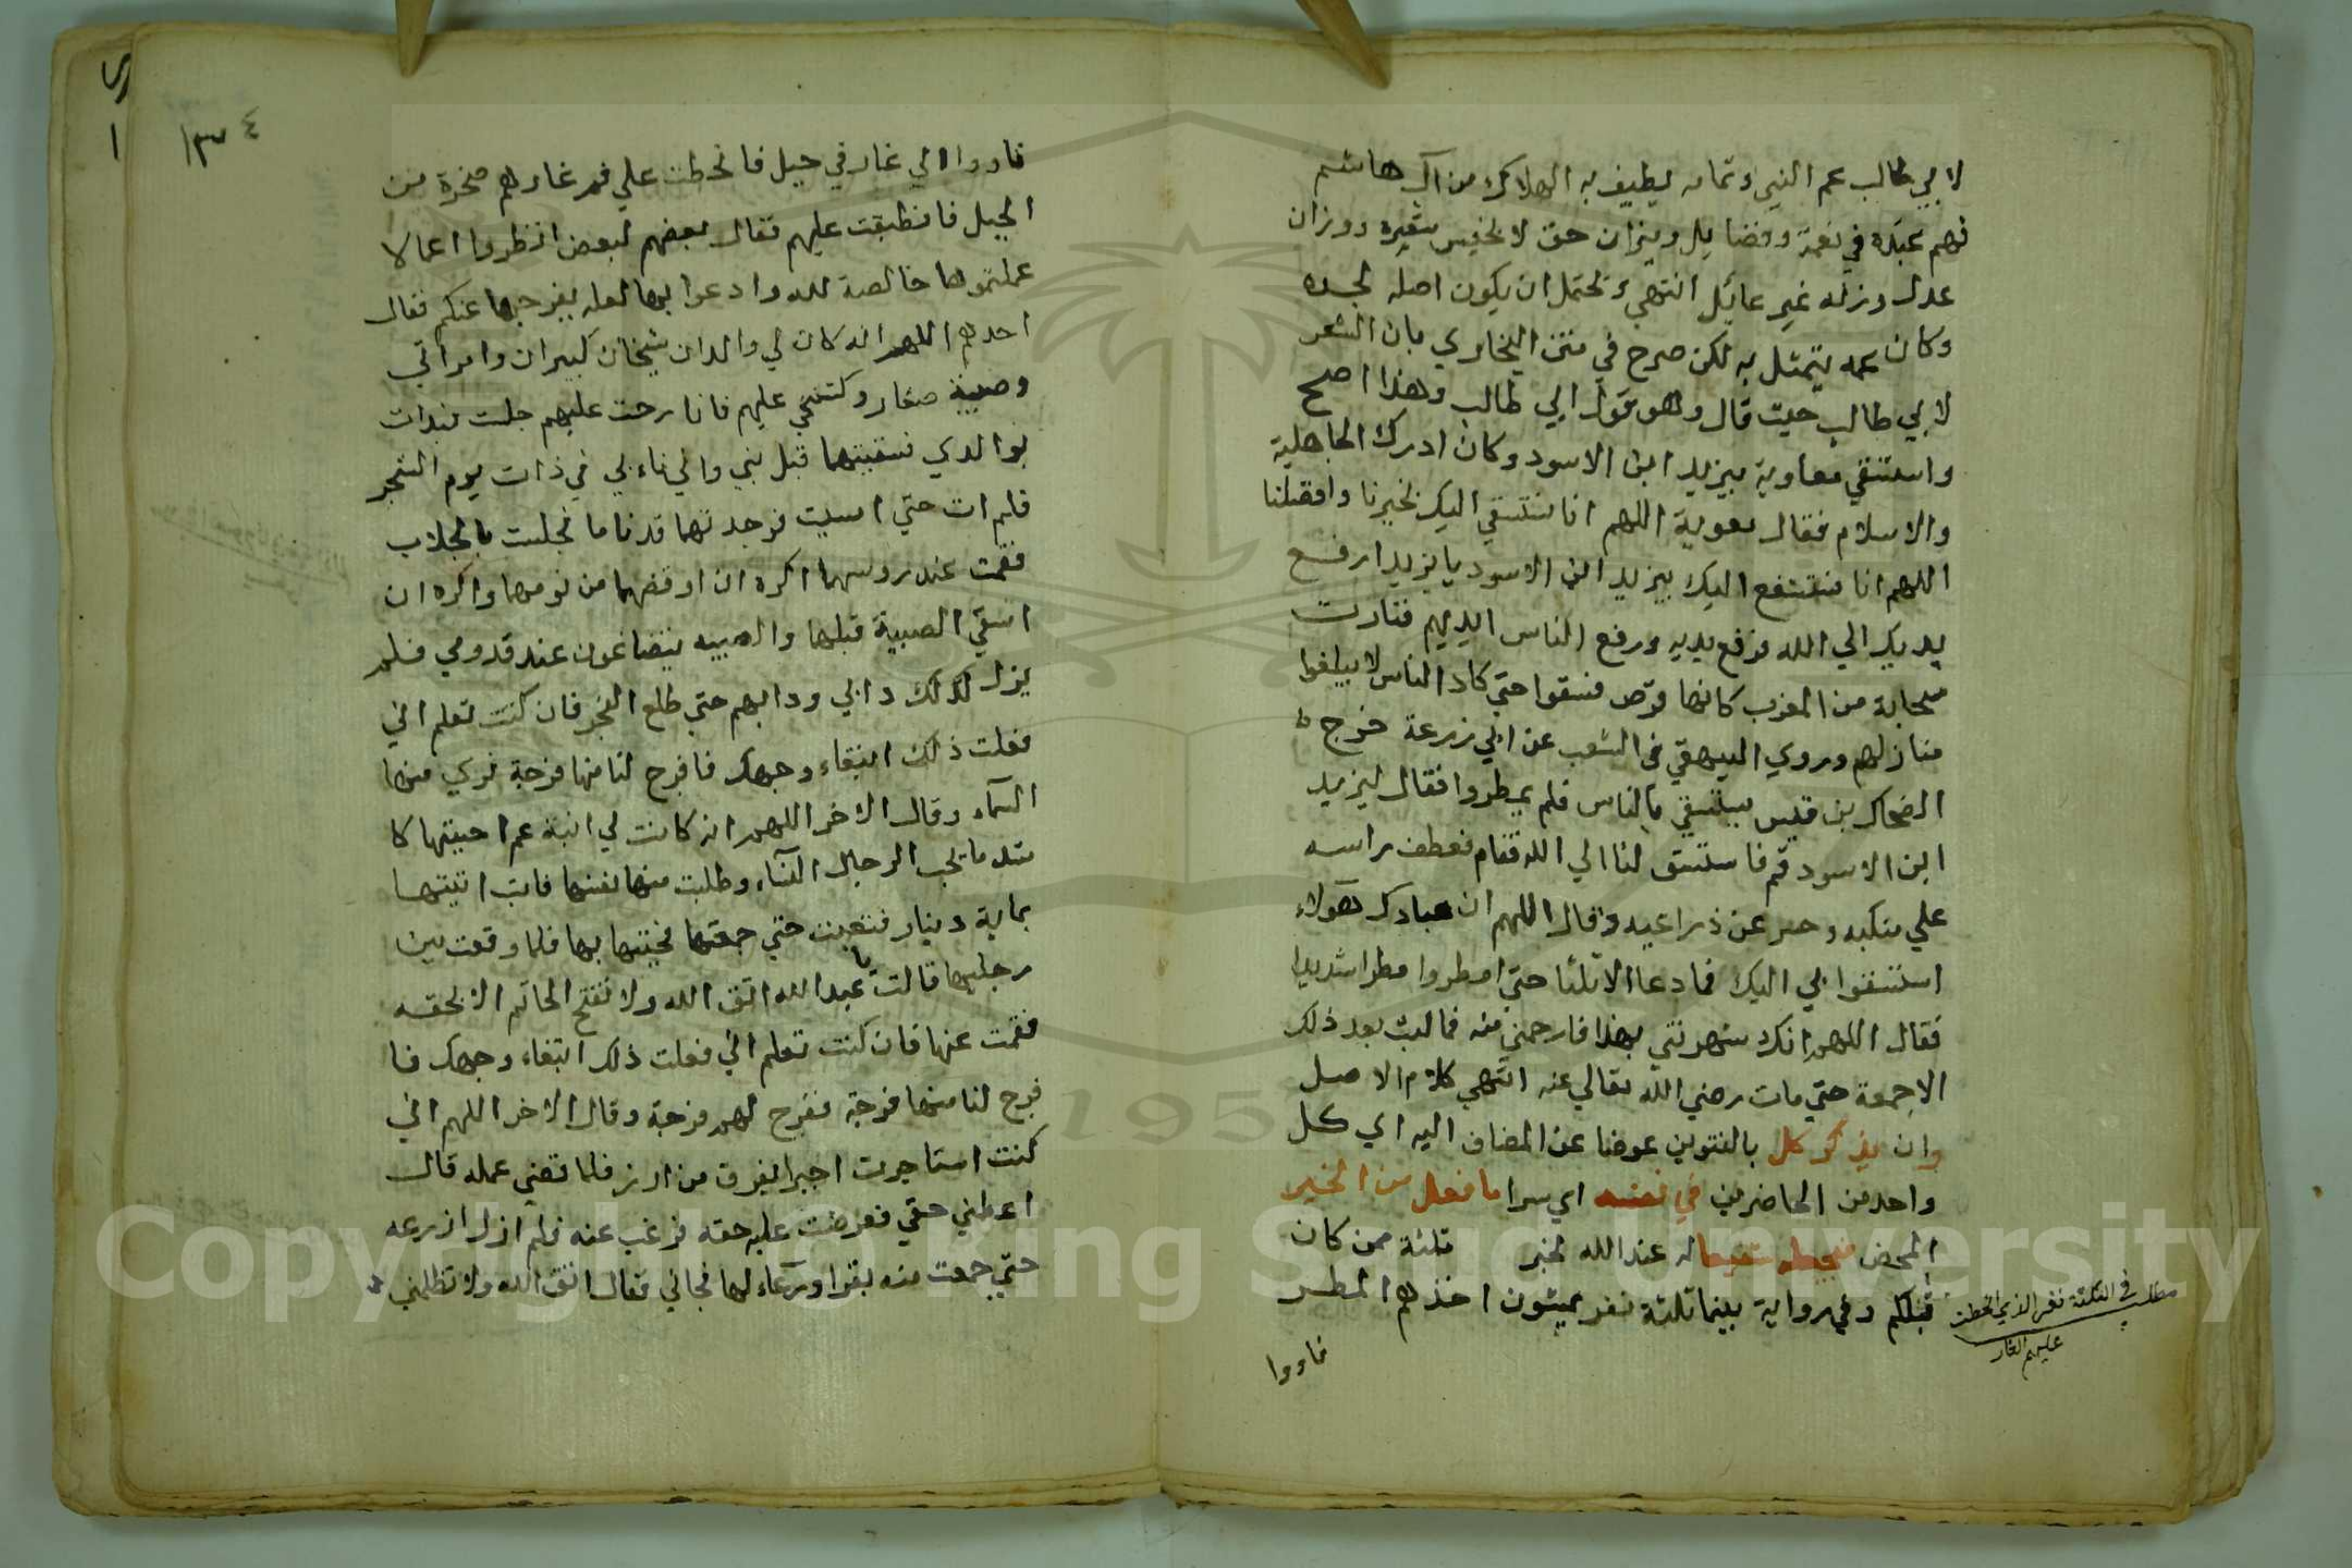 لابي طالب عم النبي وتمامه يطيف به الهلاك من آل هاشم
فهم عنده في نعمة وفضايل وميزان حق لا يخيس شعيره ووزان
عدل وزنه غير عائل انتهي وتحتمل ان يكون اصله لجده
وكان عمه يتمثل به لكن صرح في متن البخاري بان الشعر
لابي طالب حيث قال وهو قول ابي طالب وهذا اصح
واستسقي معاوية بيزيد ابن الاسود وكان ادرك الجاهلية
والاسلام فقال معوية اللهم انا نستسقي اليك بخيرنا وافضلنا
اللهم انا نستشفع اليك بيزيد ابن الاسود يا يزيد ارفع
يديك الي الله فرفع يديه ورفع الناس ايديهم فثارت
سحابة من المغرب كانها ترس فسقوا حتي كاد الناس لا يبلغوا
منازلهم وروي البيهقي في الشعب عن ابي زرعة خرج
الضحاك بن قيس يستسقي بالناس فلم يمطروا فقال ليزيد
ابن الاسود قم فاستسق لنا الي الله فقام فعطف براسه
علي منكبه وحسر عن ذراعيه وقال اللهم ان عبادك هولاء
استسقوا بي اليك فما دعا الا ثلثا حتي امطروا مطرا شديدا
فقال اللهم انك شهرتني بهذا فارحمني منه فما لبث بعد ذلك
الا جمعة حتي مات رضي الله تعالي عنه انتهي كلام الاصل
وان يذكر كل بالتنوين عوضا عن المضاف اليه اي كل
واحد من الحاضرين في نفسه اي سرا ما فعل من الخير
المحض فيجعله شفيعا له عند الله لخبر ثلثة ممن كان
قبلكم وفي رواية بينما ثلثة نفر يمشون اخذهم المطر
مطلب في الثلثة نفر الذي انحطت
عليهم الغار
فاووا
١٣٤
فاووا الي غار في جبل فانحطت علي فم غارهم صخرة من
الجبل فانطبقت عليهم فقال بعضهم لبعض انظروا اعمالا
عملتموها خالصة لله وادعوا بها لعله يفرجها عنكم فقال
احدهم اللهم انه كان لي والدان شيخان كبيران وامراتي
وصبية صغار وكنت عليهم فاذا رحت عليهم حلبت فبدات
بوالدي فسقيتهما قبل بني واني ناء بي في ذات يوم الشجر
فلم ات حتي امسيت فوجدتهما قد ناما فجلبت بالحلاب
فقمت عند روسهما اكره ان اوقضهما من نومهما واكره ان
اسقي الصبية قبلهما والصبيه يتضاغون عند قدومي فلم
يزل كذلك دابي ودابهم حتي طلع الفجر فان كنت تعلم اني
فعلت ذلك ابتغاء وجهك فافرج لنا منها فرجة نري منها
السماء وقال الاخر اللهم انه كانت لي ابنة عم احببتها كا
شد ما يحب الرجال النساء وطلبت منها نفسها فابت اتيتها
بماية دينار فتعبت حتي جمعتها فجيتها بها فلما وقعت بين
رجليها قالت يا عبد الله اتق الله ولا تفتح الخاتم الا بحقه
فقمت عنها فان كنت تعلم اني فعلت ذلك ابتغاء وجهك فا
فرج لنا منها فرجة ففرج لهم فرجة وقال الاخر اللهم اني
كنت استاجرت اجيرا بفرق من ارز فلما قضي عمله قال
اعطني حقي فعرضت عليه حقه فرغب عنه فلم ازل ازرعه
حتي جمعت منه بقرا ورعاء لها فجاني فقال اتق الله ولا تظلمني
Copyright © King Saud University
1957